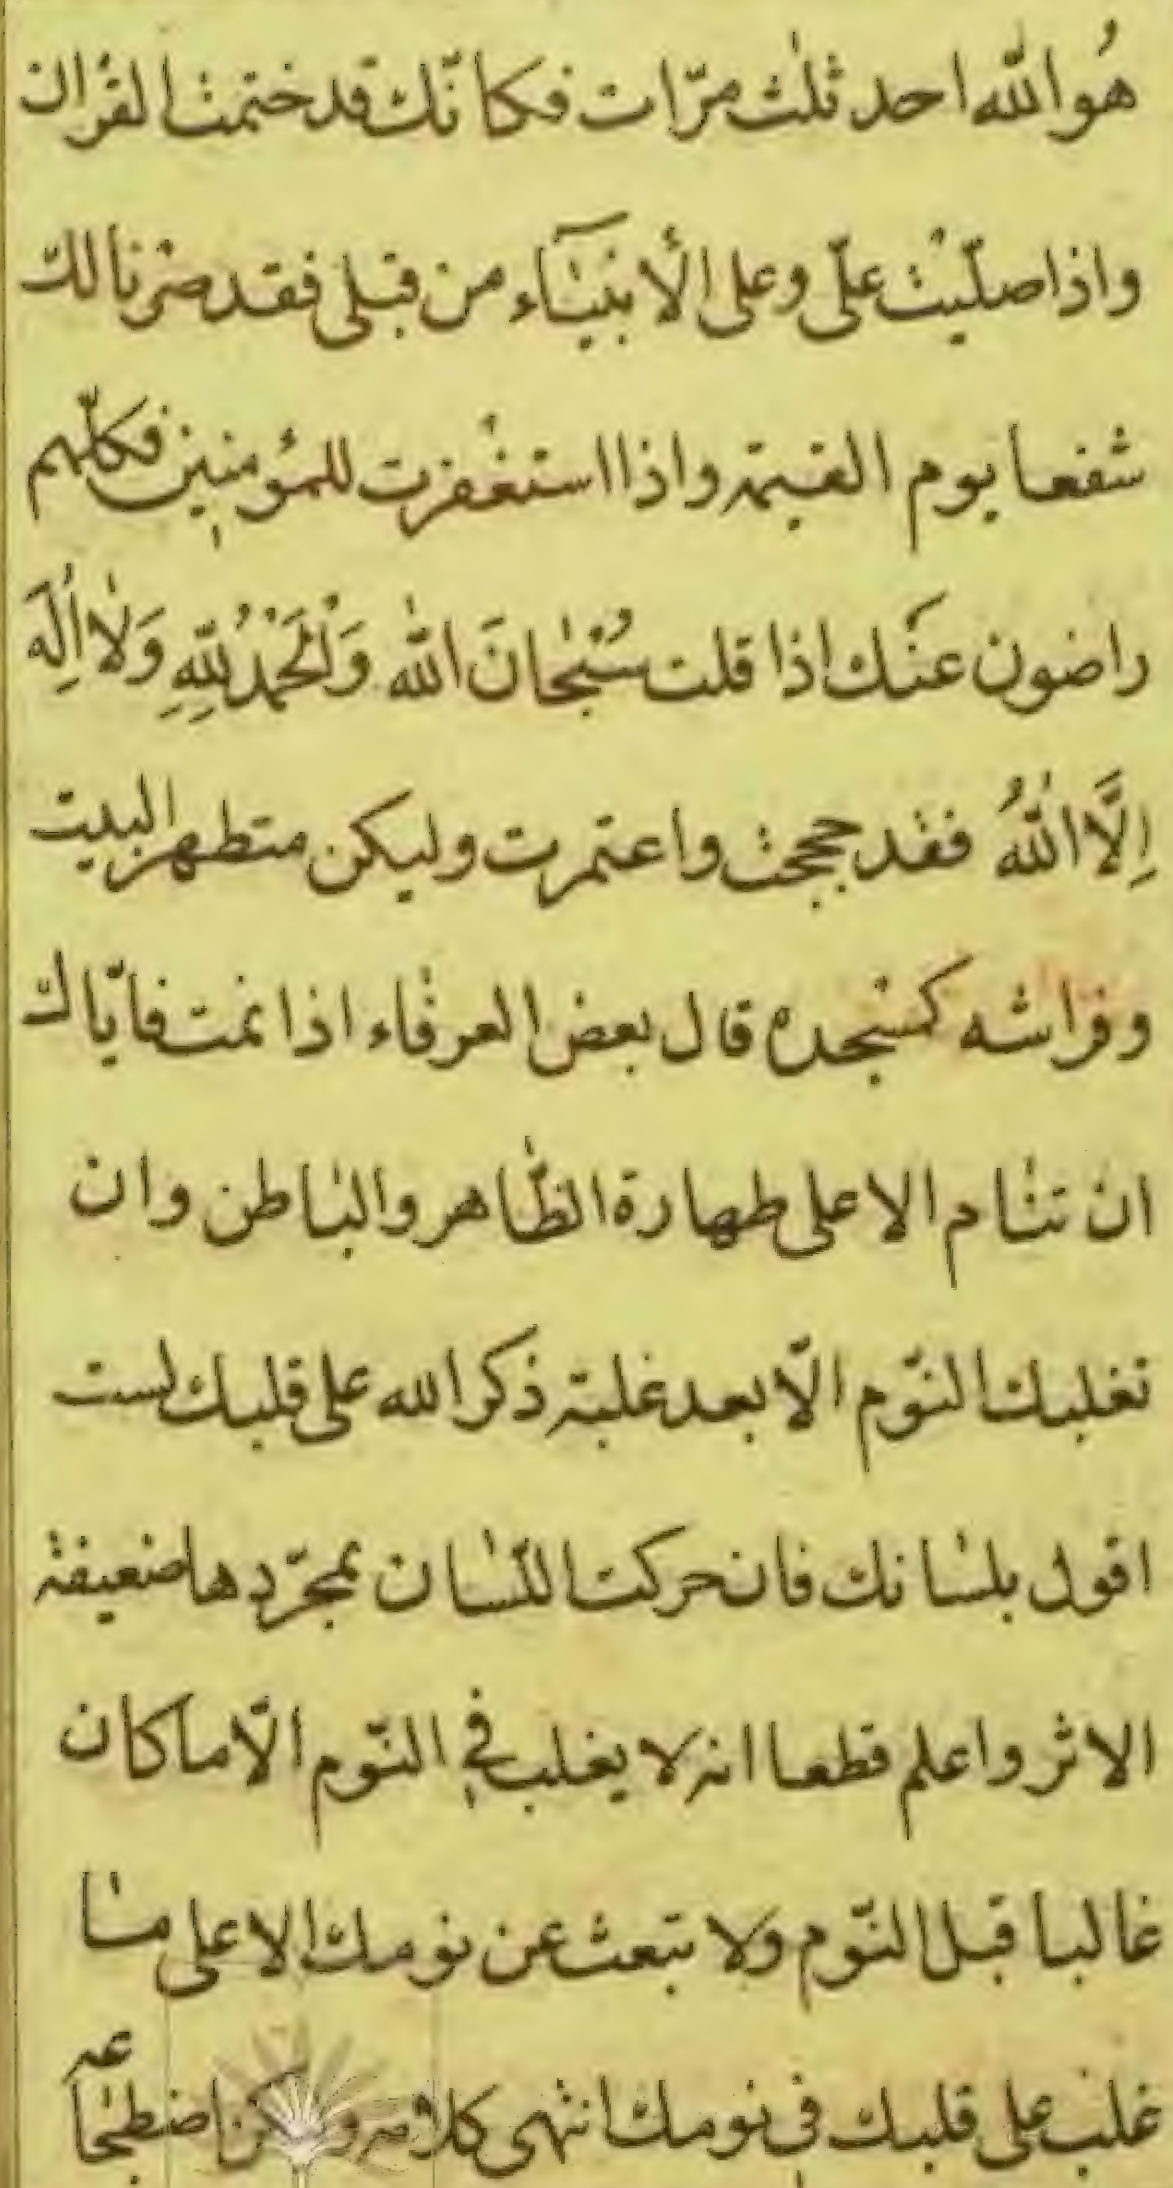 هُو الله احد ثلٰث مرّات فكانّك قد ختمت القرٰان
واذا صلّيت علىّ وعلى الأنبيٰآء من قبلى فقد صرنا لك
شفعا يوم القيمة واذا استغفرت للمؤمنين فكلّهم
راضون عنك اذا قلت سُبْحٰانَ الله وَالْحَمْدُ لِلّهِ وَلاٰ اِلٰهَ
اِلَّا اللهُ فقد حججت واعتمرت وليكن متطهر البيت
وفراشه كمسجده قال بعض العرفاء اذا نمت فايّاك
ان تنام الا على طهارة الظّاهر والباطن وان
تغلبك النّوم الّا بعد غلبة ذكر الله على قلبك لست
اقول بلسانك فان حركت اللّسان بمجرّدها ضعيفة
الاثر واعلم قطعا انه لا يغلب فى النّوم الّا ما كان
غالبا قبل النّوم ولا تبعث عن نومك الا على ما
غلب على قلبك فى نومك انتهى كلامه وليكن اضطجاعه